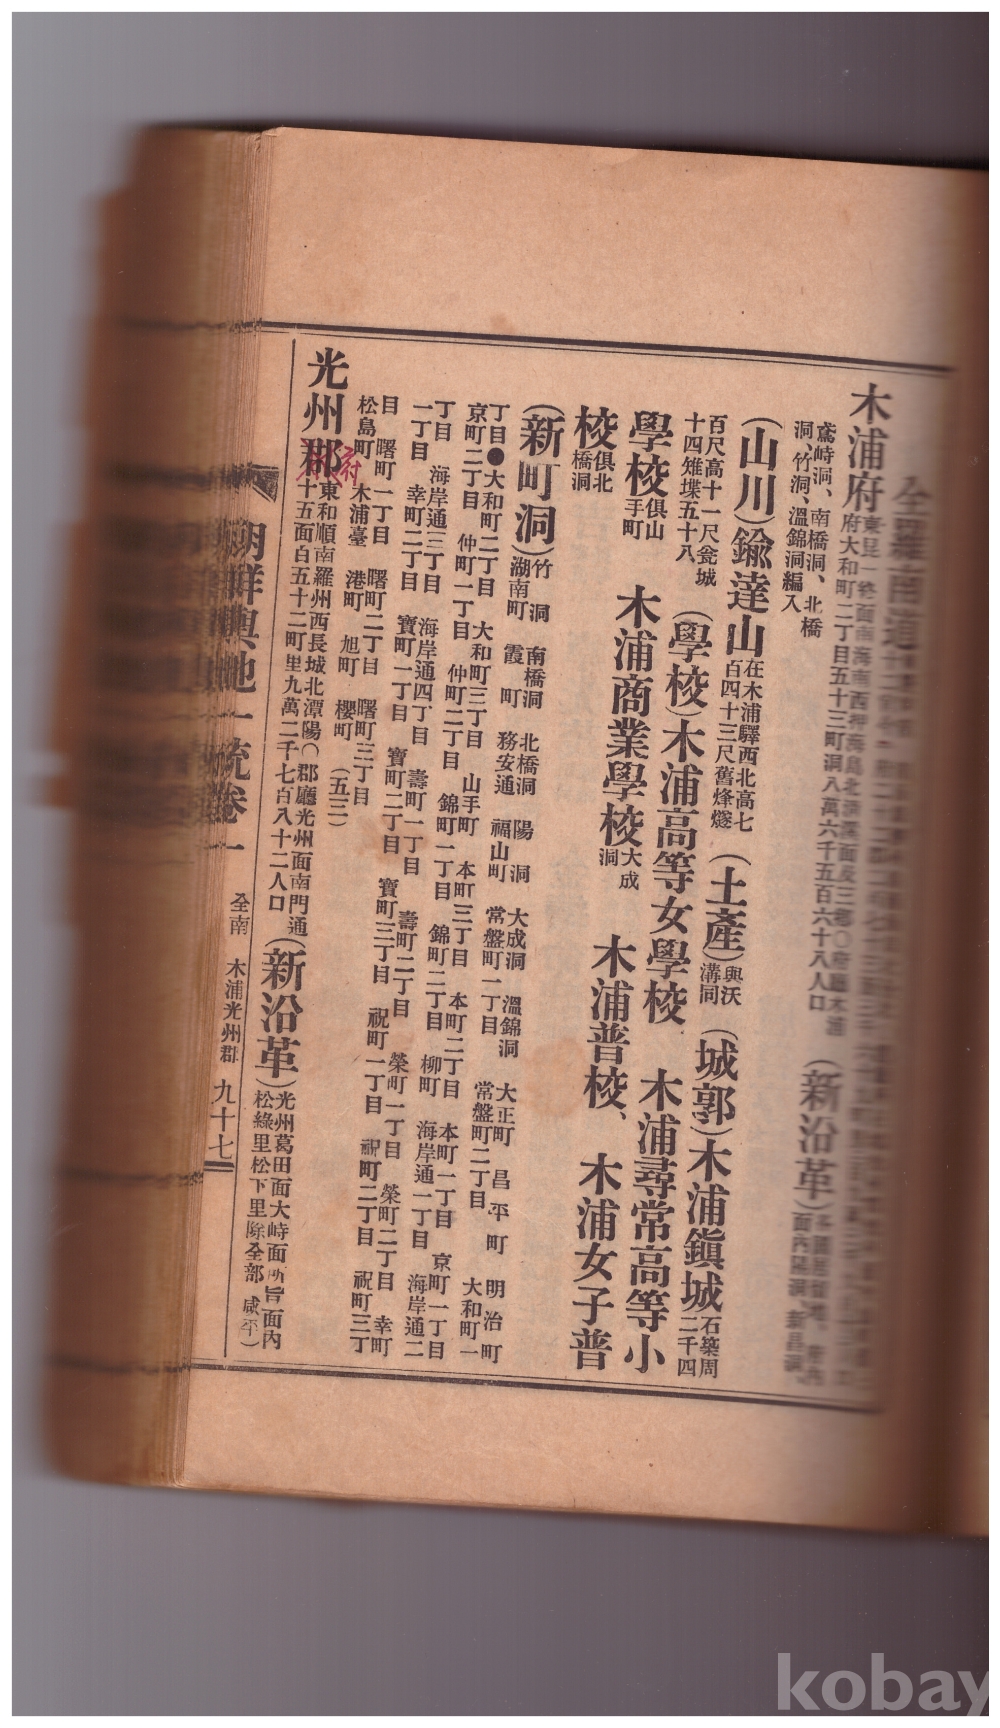 全羅南道
木浦府
府大和町二丁目五十三町洞八萬六千五百六十八人口
(新沿革)
面內陽洞、新昌洞、
鳶峙洞、南橋洞、北橋
洞、竹洞、溫錦洞編入
(山川)鍮達山
在木浦驛西北高七
百四十三尺舊烽燧
(土產)
與沃
溝同
(城郭)木浦鎭城
石築周
二千四
百尺高十一尺瓮城
十四雉堞五十八
(學校)木浦高等女學校、木浦尋常高等小
學校
俱山
手町
木浦商業學校
大成
洞
木浦普校、木浦女子普
校
俱北
橋洞
(新町洞)
竹洞 南橋洞 北橋洞 陽洞 大成洞 溫錦洞 大正町 昌平町 明治町
湖南町 霞町 務安通 福山町 常盤町一丁目 常盤町二丁目 大和町一
丁目●大和町二丁目 大和町三丁目 山手町 本町三丁目 本町二丁目 本町一丁目 京町一丁目
京町二丁目 仲町一丁目 仲町二丁目 錦町一丁目 錦町二丁目 柳町 海岸通一丁目 海岸通二
丁目 海岸通三丁目 海岸通四丁目 壽町一丁目 壽町二丁目 榮町一丁目 榮町二丁目 幸町
一丁目 幸町二丁目 寶町一丁目 寶町二丁目 寶町三丁目 祝町一丁目 祝町二丁目 祝町三丁
目 曙町一丁目 曙町二丁目 曙町三丁目
松島町 木浦臺 港町 旭町 櫻町 (五三)
光州郡
府
東和順南羅州西長城北潭陽○郡廳光州面南門通
十五面百五十二町里九萬二千七百八十二人口
(新沿革)
光州葛田面大峙面所旨面內
松綠里松下里除全部 咸平)
朝鮮輿地一統卷一 全南 木浦光州群 九十七
kobay